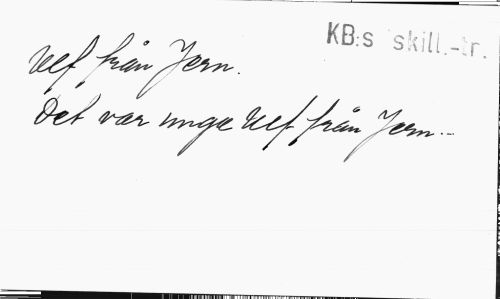 KB:s skill.-tr.
Ulf från Jern.
Det var unga Ulf från Jern...